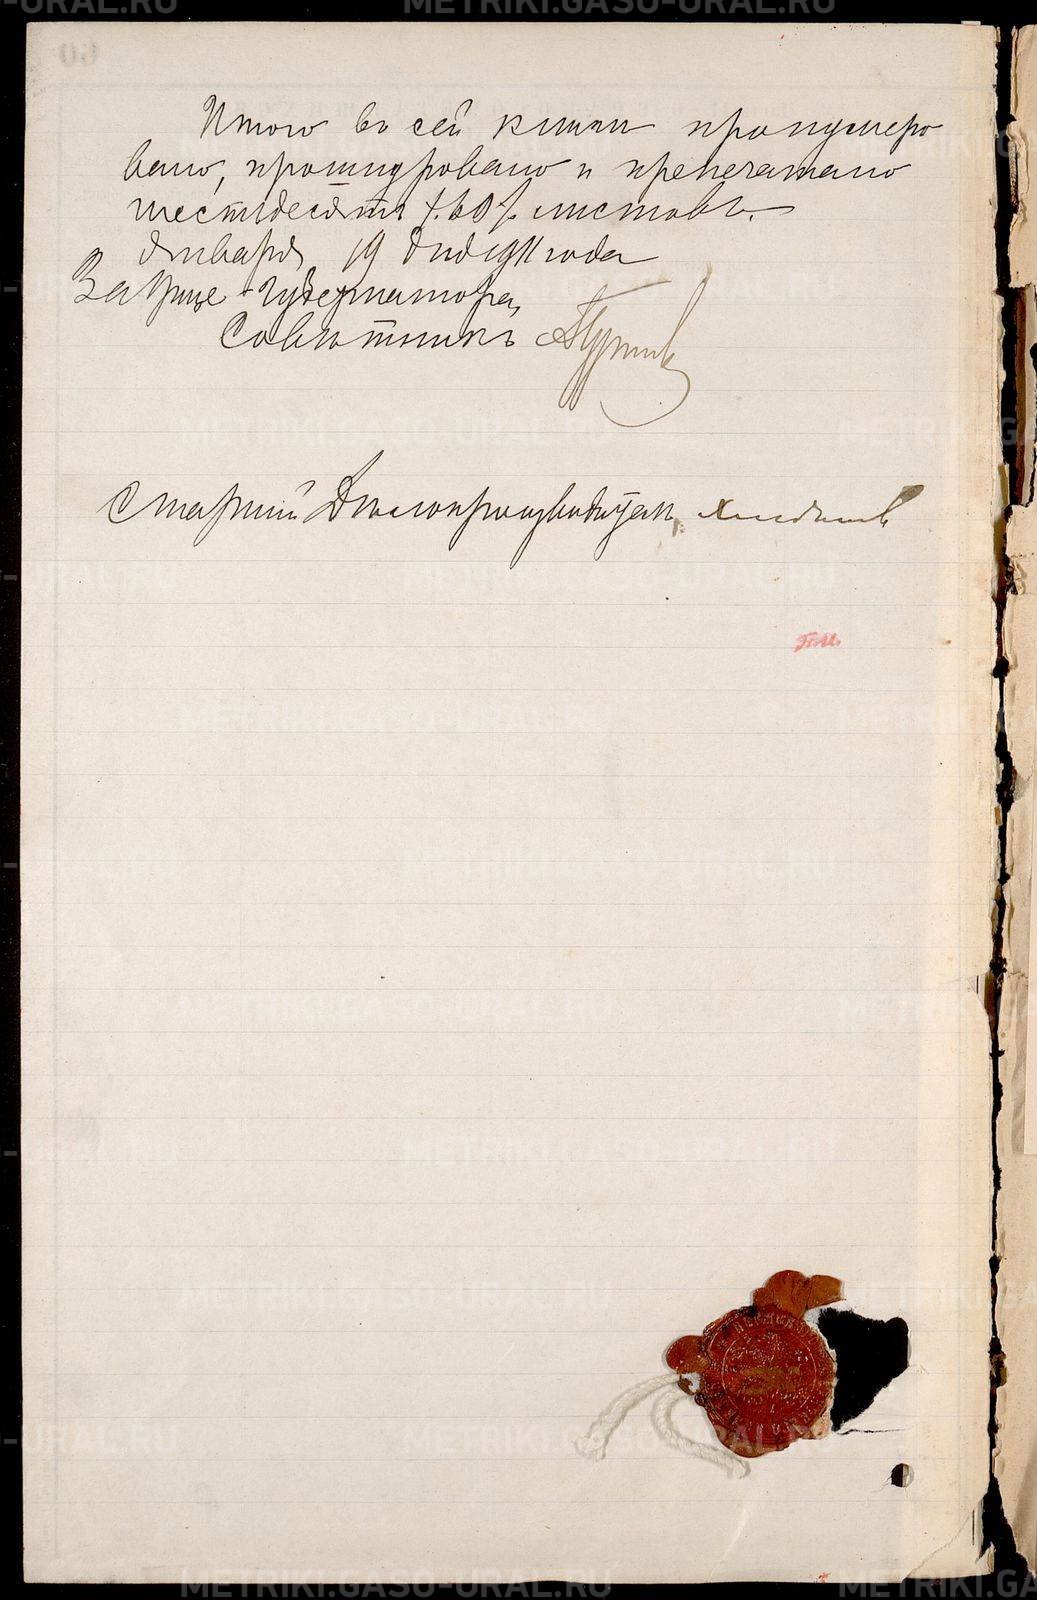 Итого въ сей книгѣ пронумеро
вано, прошнуровано и припечатано
шестьдесятъ /60/ листовъ.
Января 19 дня 1911 года
За Вице-Губернатора,
Совѣтникъ
Старшій Дѣлопроизводитель
METRIKI.GASO-URAL.RU